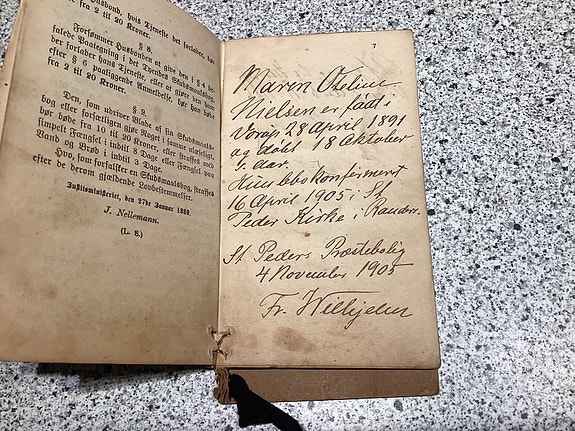 Husbond, hvis Tjeneste det forlader, bør
fra 2 til 20 Kroner.
§ 8.
Forsømmer Husbonden at give den i § 4 be-
falede Paategning i det Tyendes Skudsmaalsbog,
der forlader hans Tjeneste, eller at gjøre den
efter § 6 paaliggende Anmeldelse, bør han bøde
fra 2 til 20 Kroner.
§ 9.
Den, som udriver Blade af sin Skudsmaals-
bog eller forsætligen gjør Noget i samme ulæseligt,
bør bøde fra 10 til 20 Kroner, eller straffes med
simpelt Fængsel indtil 8 Dage eller Fængsel paa
Vand og Brød indtil 3 Dage.
Hvo, som forfalsker en Skudsmaalsbog, straffes
efter de derom gjældende Lovbestemmelser.
Justitsministeriet, den 27de Januar 1880.
J. Nellemann.
(L. S.)
7
Maren Oteline
Nielsen er født i
Vorup 28 April 1891
og døbt 18 Oktober
s. Aar.
Hun blev konfirmeret
16 April 1905 i St
Peder Kirke i Randers.
St Peders Præstebolig
4 November 1905
Fr. Wilhjelm